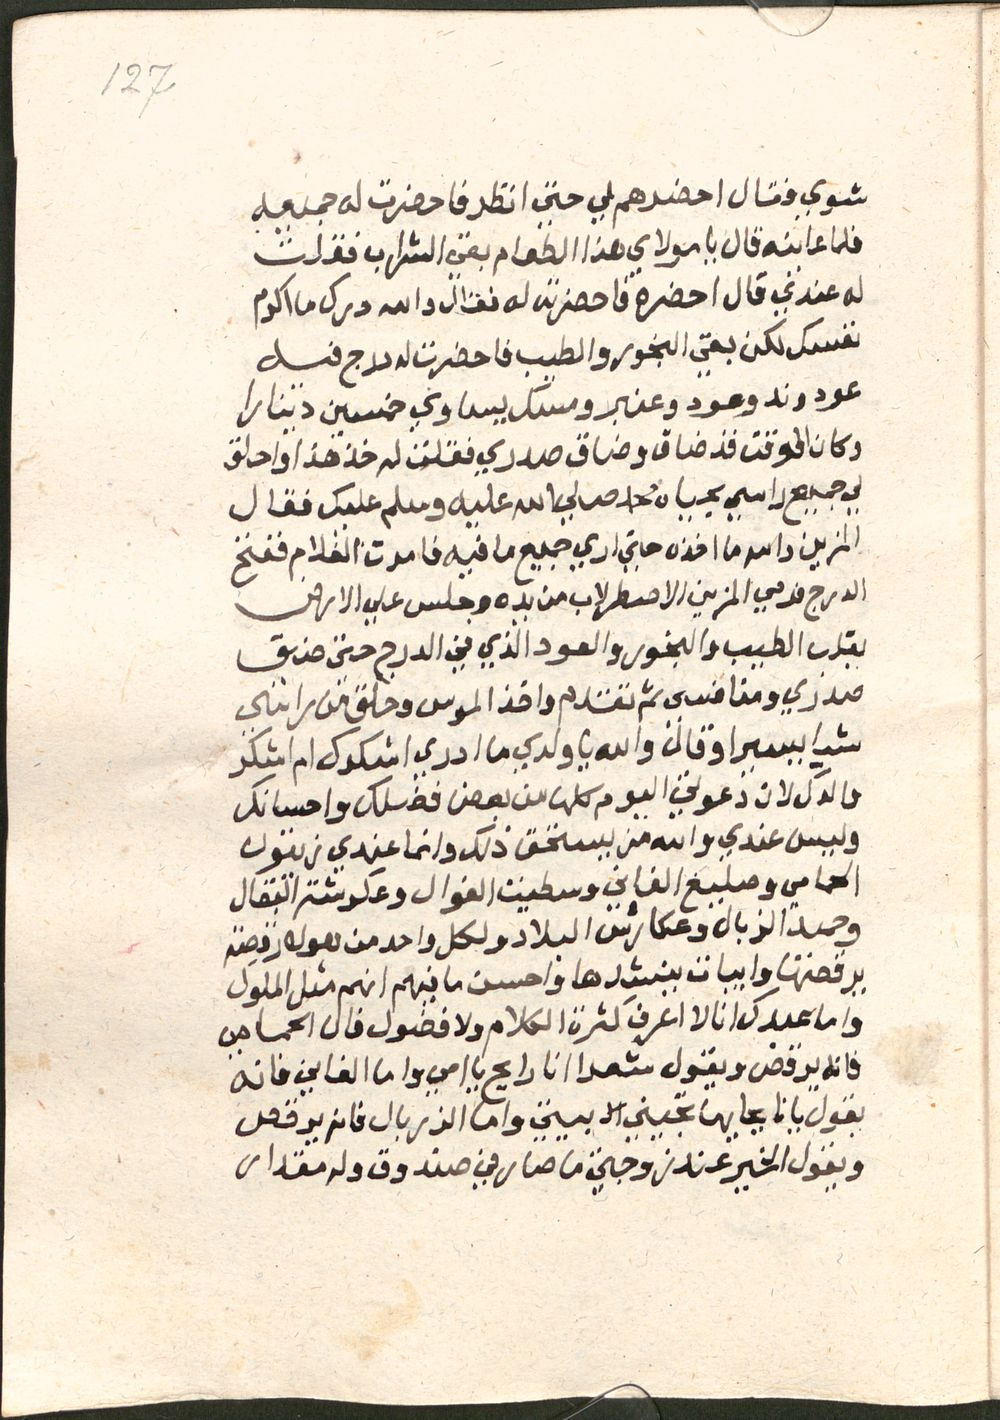 127
شوي فقال احضرهم لي حتي انظر فاحضرت له جميعه
فلما عاينه قال يا مولاي هذا الطعام بقي الشراب فقلت
له عندي قال احضره فاحضرته له فقال والله درك ما اكرم
نفسك لكن بقي البخور والطيب فاحضرت له درج فيه
عود وند وعود وعنبر ومسك يساوي خمسين دينارا
وكان الوقت قد ضاق وضاق صدري فقلت له خذ هذا واحلق
لي جميع راسي بحياة محمد صلي الله عليه وسلم عليك فقال
المزين والله ما اخذه حتي اري جميع ما فيه فامرت الغلام ففتح
الدرج فرمي المزين الاصطرلاب من يده وجلس علي الارض
يقلب الطيب والبخور والعود الذي في الدرج حتي ضيق
صدري ثم تقدم واخذ الموس وحلق من راسي
شيا يسيرا وقال والله يا ولدي ما ادري اشكرك ام اشكر
والدك لان دعوتي اليوم كلها من بعض فضلك واحسانك
وليس عندي والله من يستحق ذلك وانما عندي زيتون
الحمامي وصليع الفامي وسطيت الفوال وعكرشة البقال
وحميد الزبال وعكارش البلاد ولكل واحد من هولا رقصة
يرقصها وابيات ينشدها واحسن ما فيهم انهم مثل الملوك
واما عبدك انا لا اعرف كثرة الكلام ولا فضول قال الحمامي
فانه يرقص ويقول شعرا انا رايح يا امي واما الفامي فانه
يقول واما الزبال فانه يرقص
ويقول الخبر عند زوجتي ما صار في صندوق وله مقدار